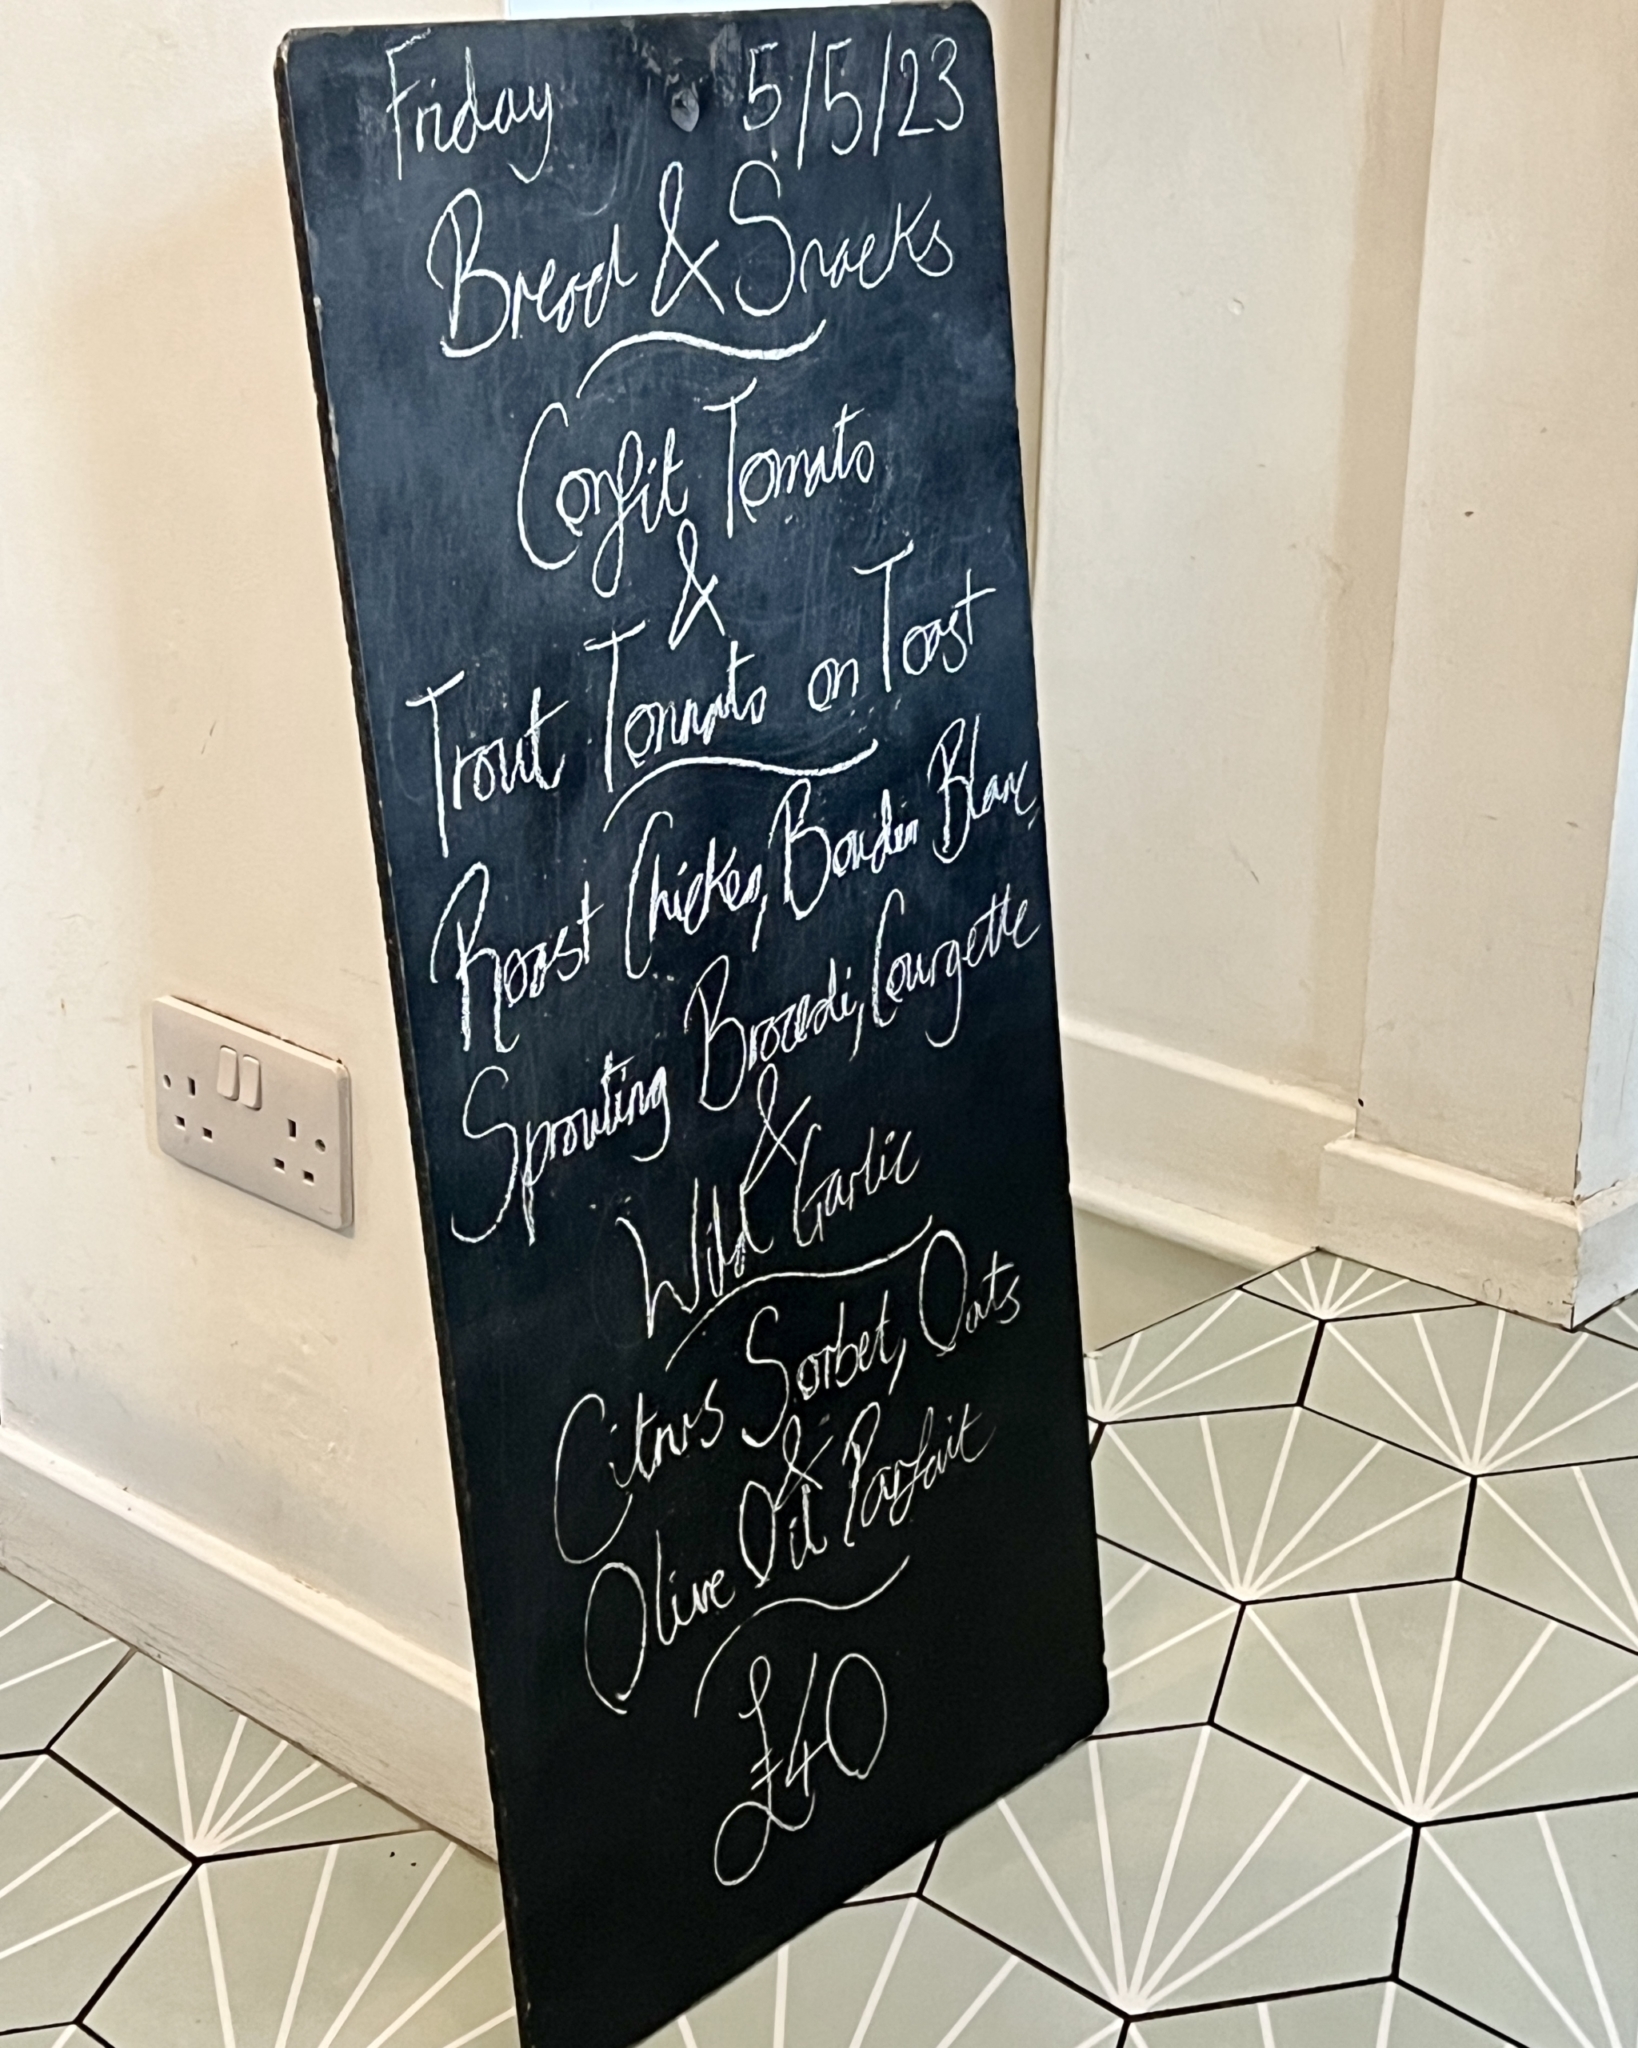 Friday 5/5/23
Bread & Snacks
Confit Tomato
&
Trout Tonnato on Toast
Roast Chicken, Boudin Blanc
Sprouting Broccoli, Courgette
&
Wild Garlic
Citrus Sorbet, Oats
&
Olive Oil Parfait
£40